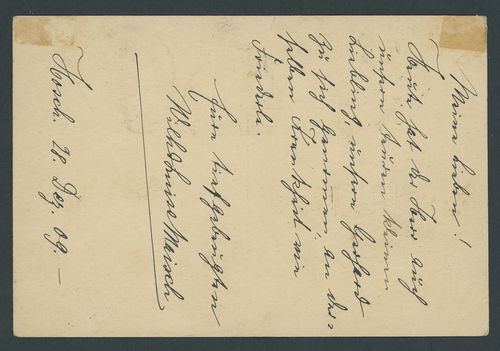 Meine Lieben!
Heute hat der Herr auch
unsern teuren kleinen
Liebling, unsern Gerhard
zu sich genommen, an der-
selben Krankheit wie
Friedel.
Eure tiefgebeugten
Wilhelm u.
Hosch. 28. Dez. 09. —